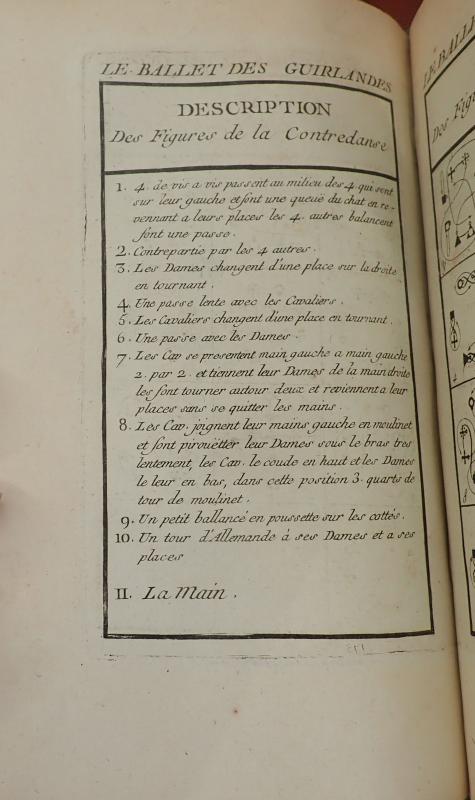 LE BALLET DES GUIRLANDES
DESCRIPTION
Des Figures de la Contredanse
1. 4. de vis a vis passent au milieu des 4. qui sont
sur leur gauche et font une queuë du chat en re-
vennant a leurs places les 4. autres balancent
font une passe.
2. Contrepartie par les 4 autres.
3. Les Dames changent d'une place sur la droite
en tournant.
4. Une passe lente avec les Cavaliers.
5. Les Cavaliers changent d'une place en tournant.
6. Une passe avec les Dames.
7. Les Cav se presentent main gauche a main gauche
2. par 2. et tiennent leur Dames de la main droite
les font tourner autour deux et reviennent a leur
places sans se quitter les mains.
8. Les Cav. joignent leur mains gauche en moulinet
et font pirouëtter leur Dames sous le bras tres
lentement, les Cav. le coude en haut et les Dames
le leur en bas, dans cette position 3. quarts de
tour de moulinet.
9. Un petit ballancé en poussette sur les cottés.
10. Un tour d'Allemande à ses Dames et a ses
places
II. La Main.
LE BALL
Des Figu